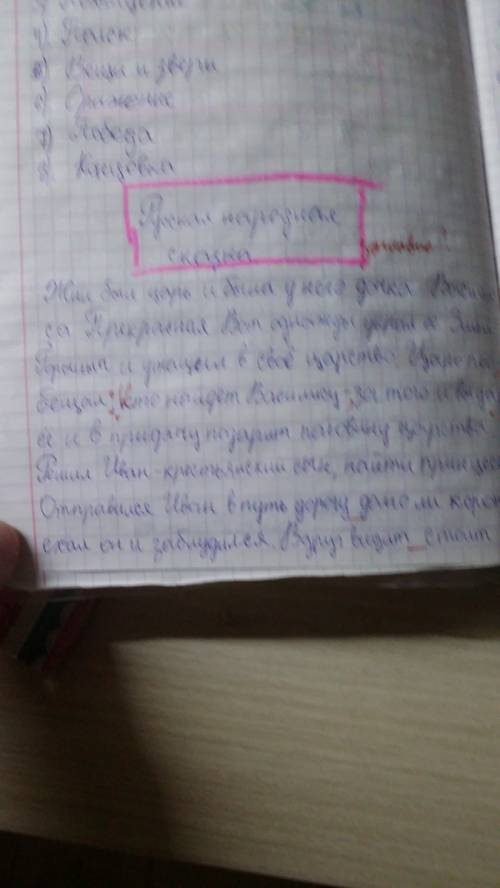 4) Поиск
5) Вещи и звери
6) Сражение
7) Победа
8. Концовка
Русская народная
сказка
заголовок?
Жил был царь и была у него дочка Васили
са Прекрасная. Вот однажды украл её Змей
Горыныч и унёс в своё царство. Царь по
обещал: кто найдет Василису, за того и выда
её и в придачу подарит половину царства.
Решил Иван-крестьянский сын, найти принцес
Отправился Иван в путь дорогу долго ли корот
ехал он и заблудился. Вдруг видит стоит